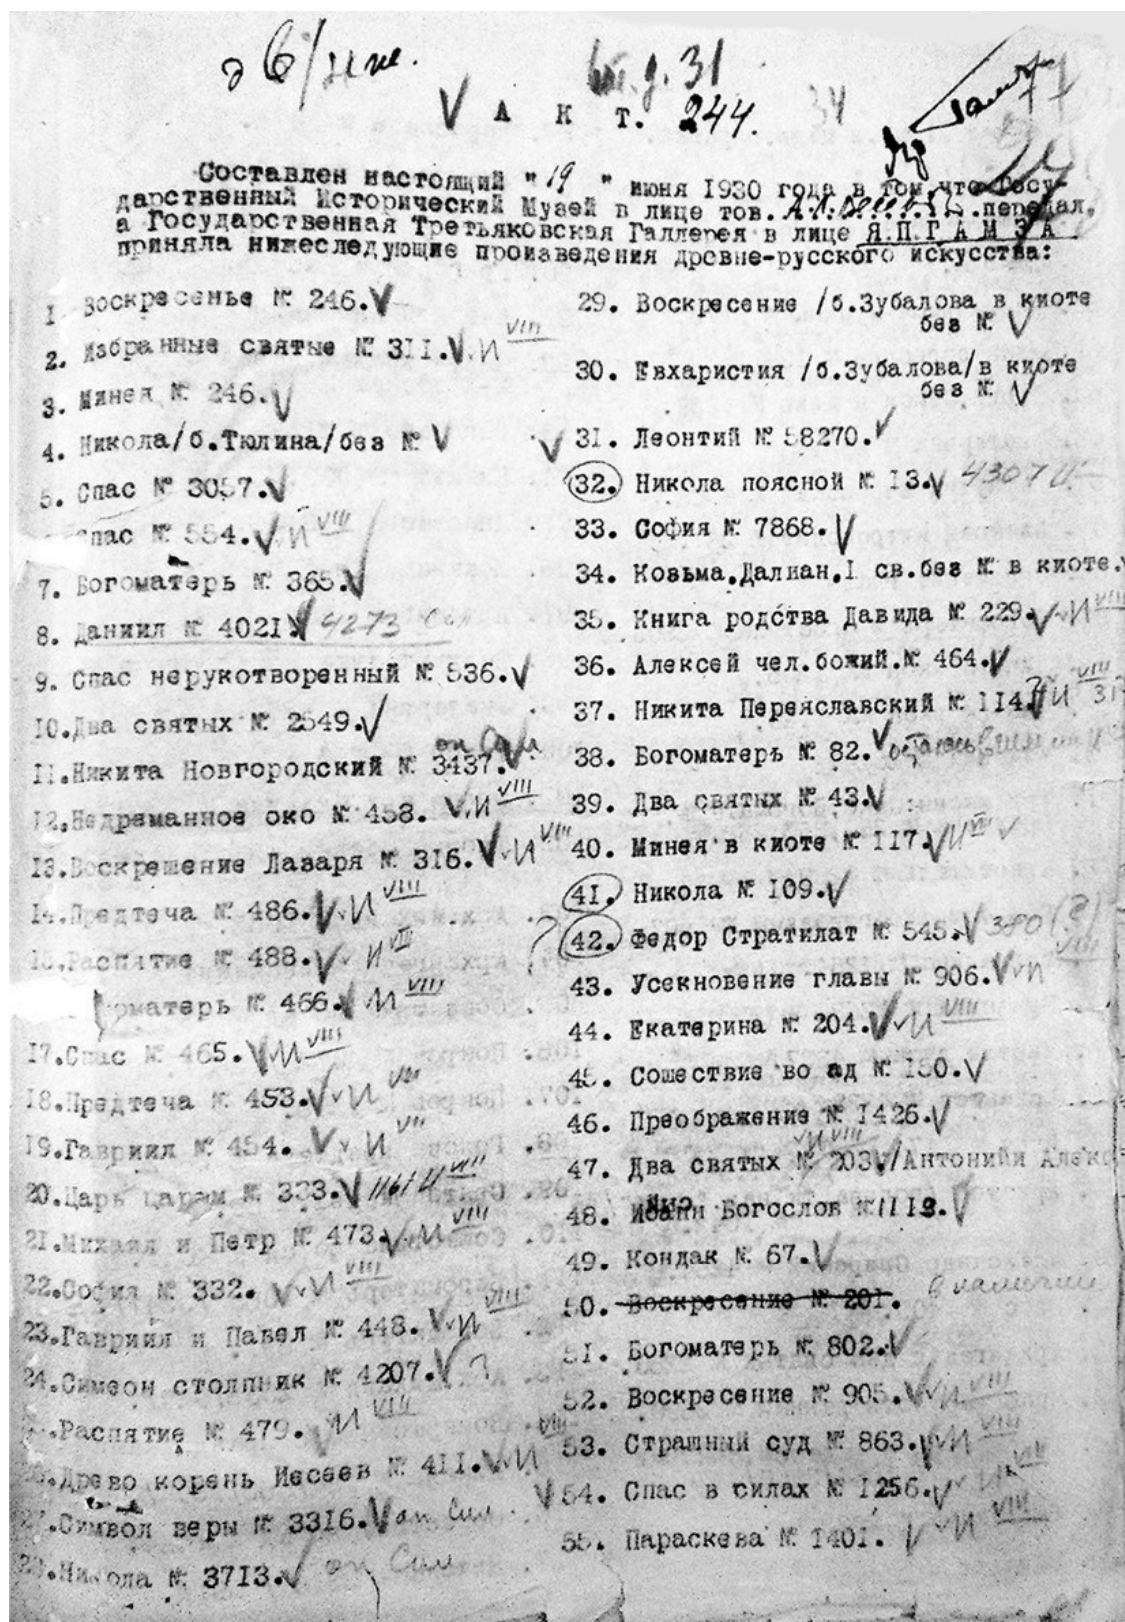 31
А К Т. 244.
Составлен настоящий "19" июня 1930 года в том, что Госу-
дарственный Исторический Музей в лице тов. передал,
а Государственная Третьяковская Галлерея в лице Я.П.ГАМЗА
приняла нижеследующие произведения древне-русского искусства:
1 Воскресенье № 246. V
2. Избранные святые № 311. V. И VIII
3. Минея № 246. V
4. Никола/б.Тюлина/без № V
5. Спас № 3057. V
Спас № 554. V И VIII
7. Богоматерь № 365. V
8. Даниил № 4021 V 4273
9. Спас нерукотворенный № 536. V
10. Два святых № 2549. V
11. Никита Новгородский № 3437. V
12. Недреманное око № 458. V. И VIII
13. Воскрешение Лазаря № 316. V v И VIII
14. Предтеча № 486. V v И VIII
15. Распятие № 488. V v И VIII
оматерь № 466. V И VIII
17. Спас № 465. V v И VIII
18. Предтеча № 453. V v И VIII
19. Гавриил № 454. V v И VIII
20. Царь царям № 333. V 1161 И VIII
21. Михаил и Петр № 473. V v И VIII
22. София № 332. V v И VIII
23. Гавриил и Павел № 448. V v И VIII
24. Симеон столпник № 4207. V ?
.Распятие № 479. V И VIII
.Древо корень Иесеев № 411. V v И VIII
.Символ веры № 3316. V
.Никола № 3713. V
29. Воскресение /б.Зубалова в киоте
без № V
30. Евхаристия /б.Зубалова/в киоте
без № V
V 31. Леонтий № 58270. V
32. Никола поясной № 13. V 4307
33. София № 7868. V
34. Козьма.Далиан.I св.без № в киоте. V
35. Книга родства Давида № 229. V v И VIII
36. Алексей чел.божий.№ 464. V
37. Никита Переяславский № 114. И VIII 31
38. Богоматерь № 82. V
39. Два святых № 43. V
40. Минея в киоте № 117. V И VIII v
41. Никола № 109. V
? 42. Федор Стратилат № 545. V 380 (?)
43. Усекновение главы № 906. V v И VIII
44. Екатерина № 204. V v И VIII
45. Сошествие во ад № 150. V
46. Преображение № 1426. V
v И VIII
47. Два святых № 203 V/Антонийи Алекс
48. Иоанн Богослов № 1112. V
49. Кондак № 67. V
50. Воскресение № 201. в наличии
51. Богоматерь № 802. V
52. Воскресение № 905. V v И VIII
53. Страшный суд № 863. V v И VIII
V 54. Спас в силах № 1256. V v И VIII
55. Параскева № 1401. V v И VIII